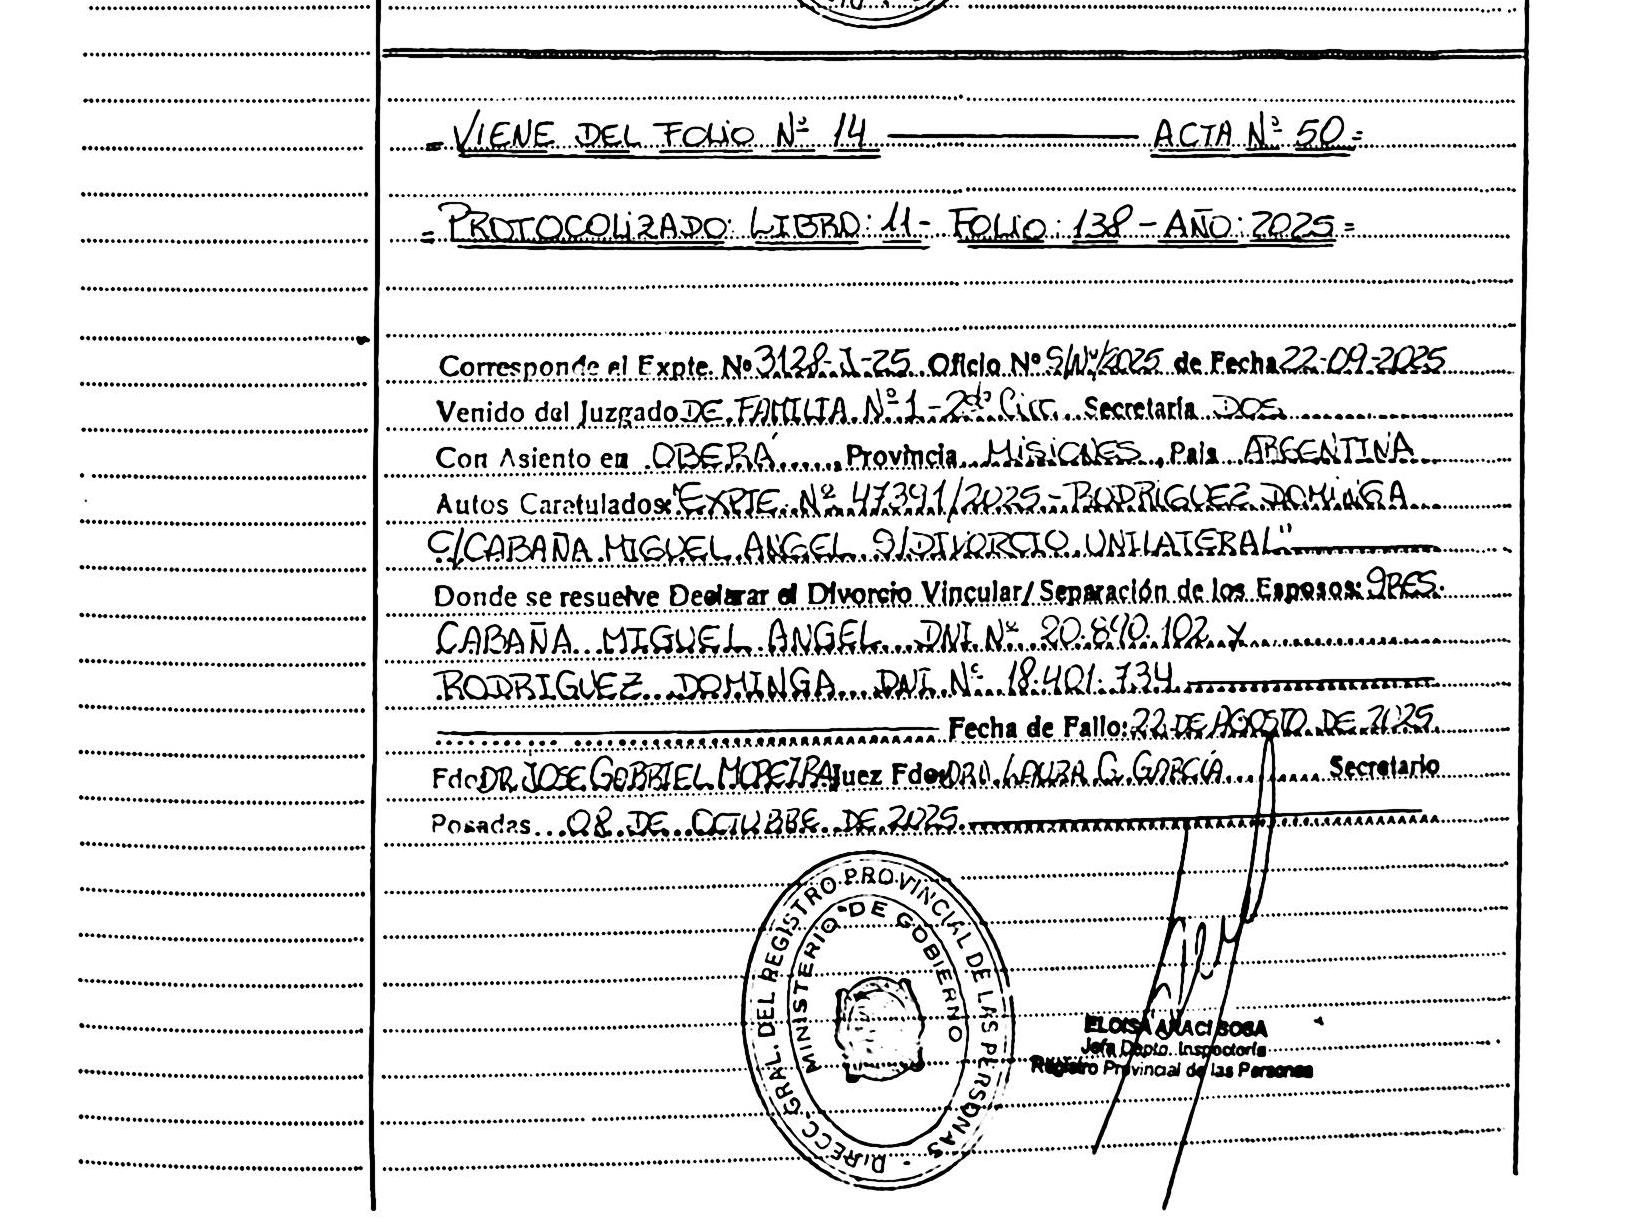 = VIENE DEL FOLIO Nº 14 ACTA Nº 50 =
= PROTOCOLIZADO: LIBRO: 11 - FOLIO: 138 - AÑO: 2025 =
Corresponde el Expte. Nº 3128-J-25 Oficio Nº S/Nº/2025 de Fecha 22-09-2025
Venido del Juzgado DE FAMILIA Nº 1 - 2da Circ. Secretaría DOS
Con Asiento en OBERÁ, Provincia MISIONES, País ARGENTINA
Autos Caratulados: "EXPTE. Nº 47391/2025 - RODRIGUEZ DOMINGA
C/ CABAÑA MIGUEL ANGEL S/ DIVORCIO UNILATERAL"
Donde se resuelve Declarar el Divorcio Vincular/ Separación de los Esposos: SRES.
CABAÑA MIGUEL ANGEL DNI. Nº 20.840.102 y
RODRIGUEZ DOMINGA DNI Nº 18.401.734
Fecha de Fallo: 22 DE AGOSTO DE 2025
Fdo: DR. JOSE GABRIEL MOREIRA Juez Fdo: DRA. LAURA G. GARCÍA Secretario
Posadas 08 DE OCTUBRE DE 2025
DIRECC. GRAL. DEL REGISTRO PROVINCIAL DE LAS PERSONAS
MINISTERIO DE GOBIERNO
ELOISA ARACI SOSA
Jefa Dpto. Inspectoría
Registro Provincial de las Personas